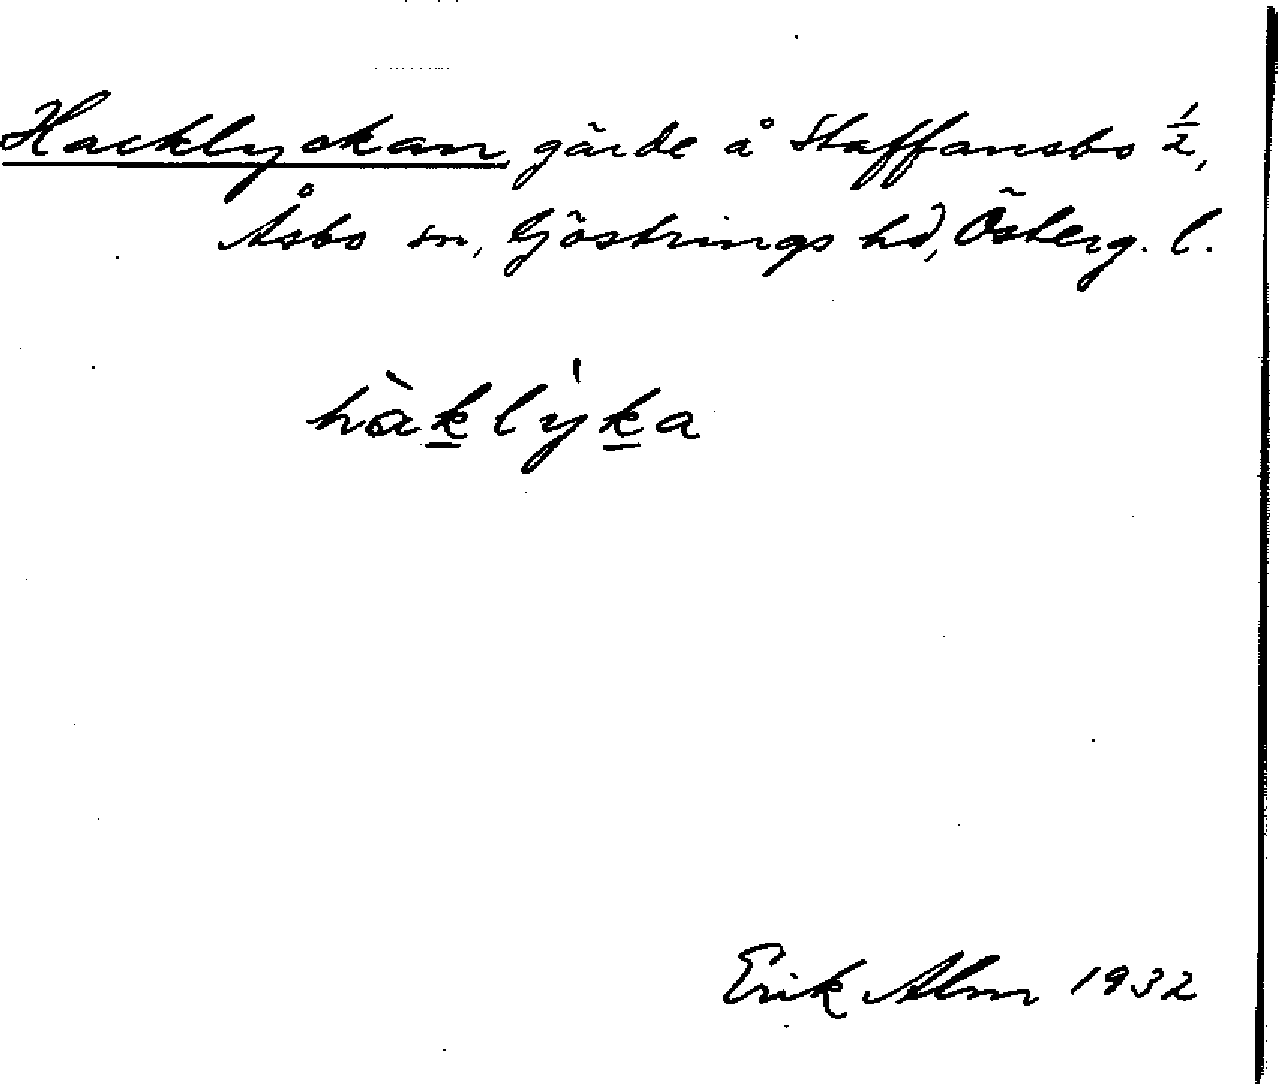 Hacklyckan gärde å Staffansbo 1/2,
Åsbo sn, Göstrings hd, Österg. l.
hàk̲ly̍k̲a
Erik Alm 1932